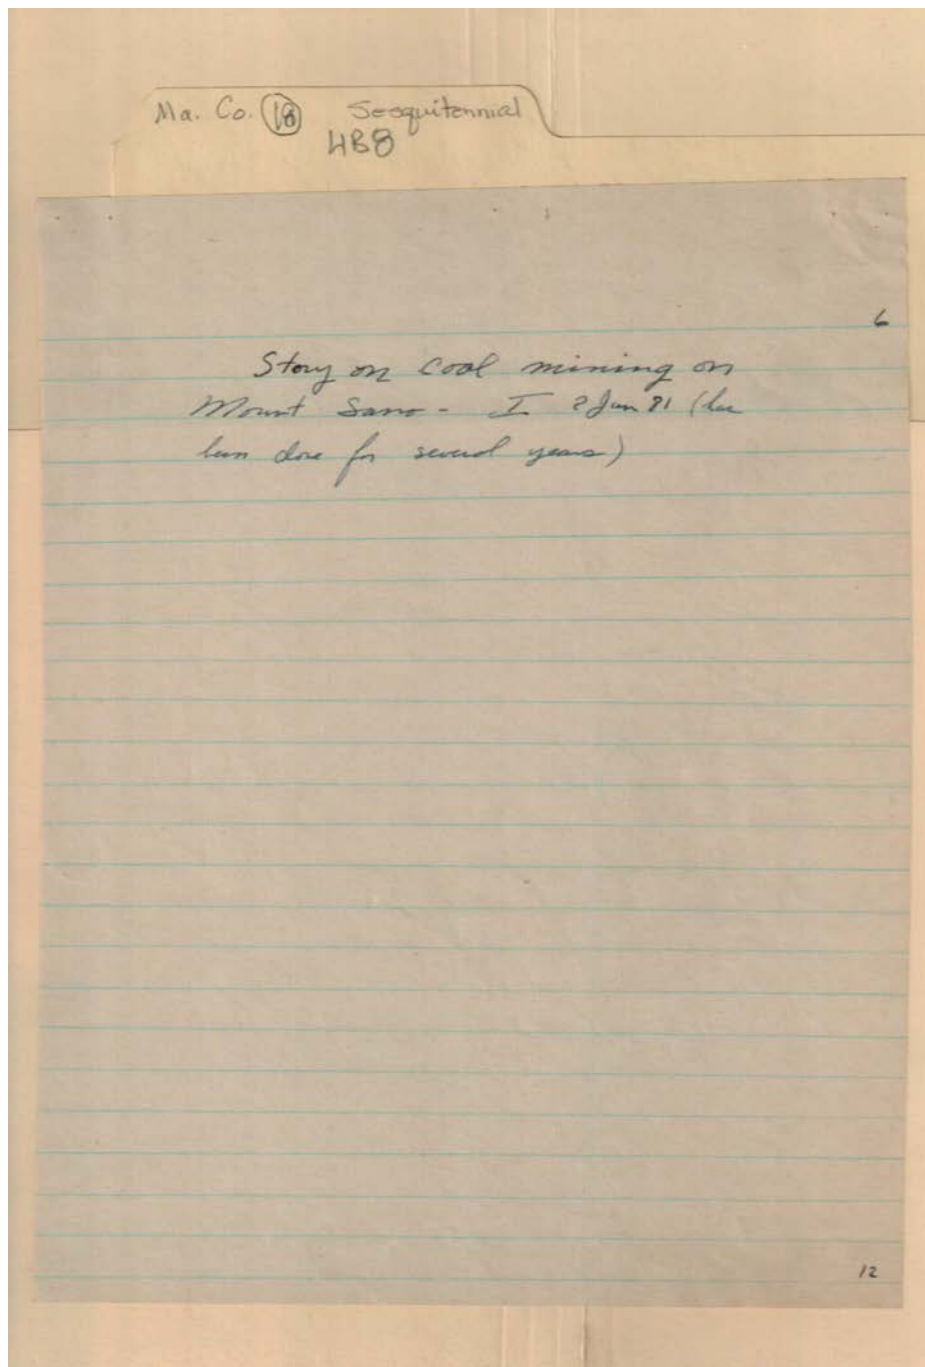 Ma. Co. 18 Sesquitennial
4B8
6
Story on coal mining on
Mount Sano - I 2 Jan 81 (has
been done for several years)
12